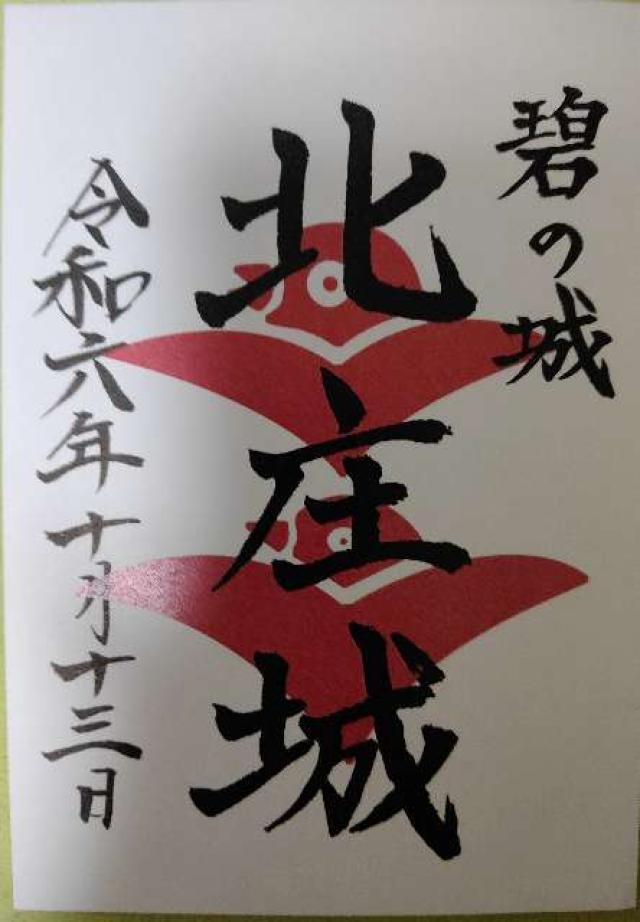 碧の城
北庄城
令和六年十月十三日